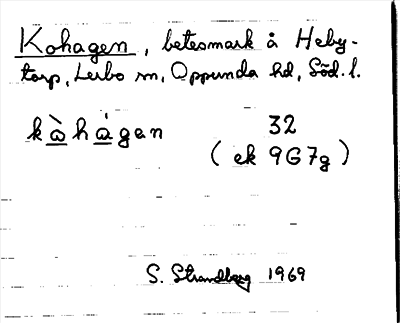 Kohagen, betesmark å Heby-
torp, Lerbo sn, Oppunda hd, Söd. l.
kàhágen 32
(ek 9G7g)
S. Strandberg 1969